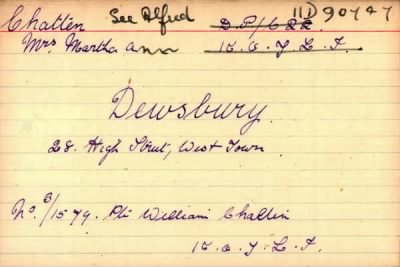 Chatten See Alfred D.P/622 11D90747
Mrs. Martha ann K.O.Y.L.I.
Dewsbury.
28. High Street, West Town
No. 3/1579. Pte William Chatten
K.O.Y.L.I.